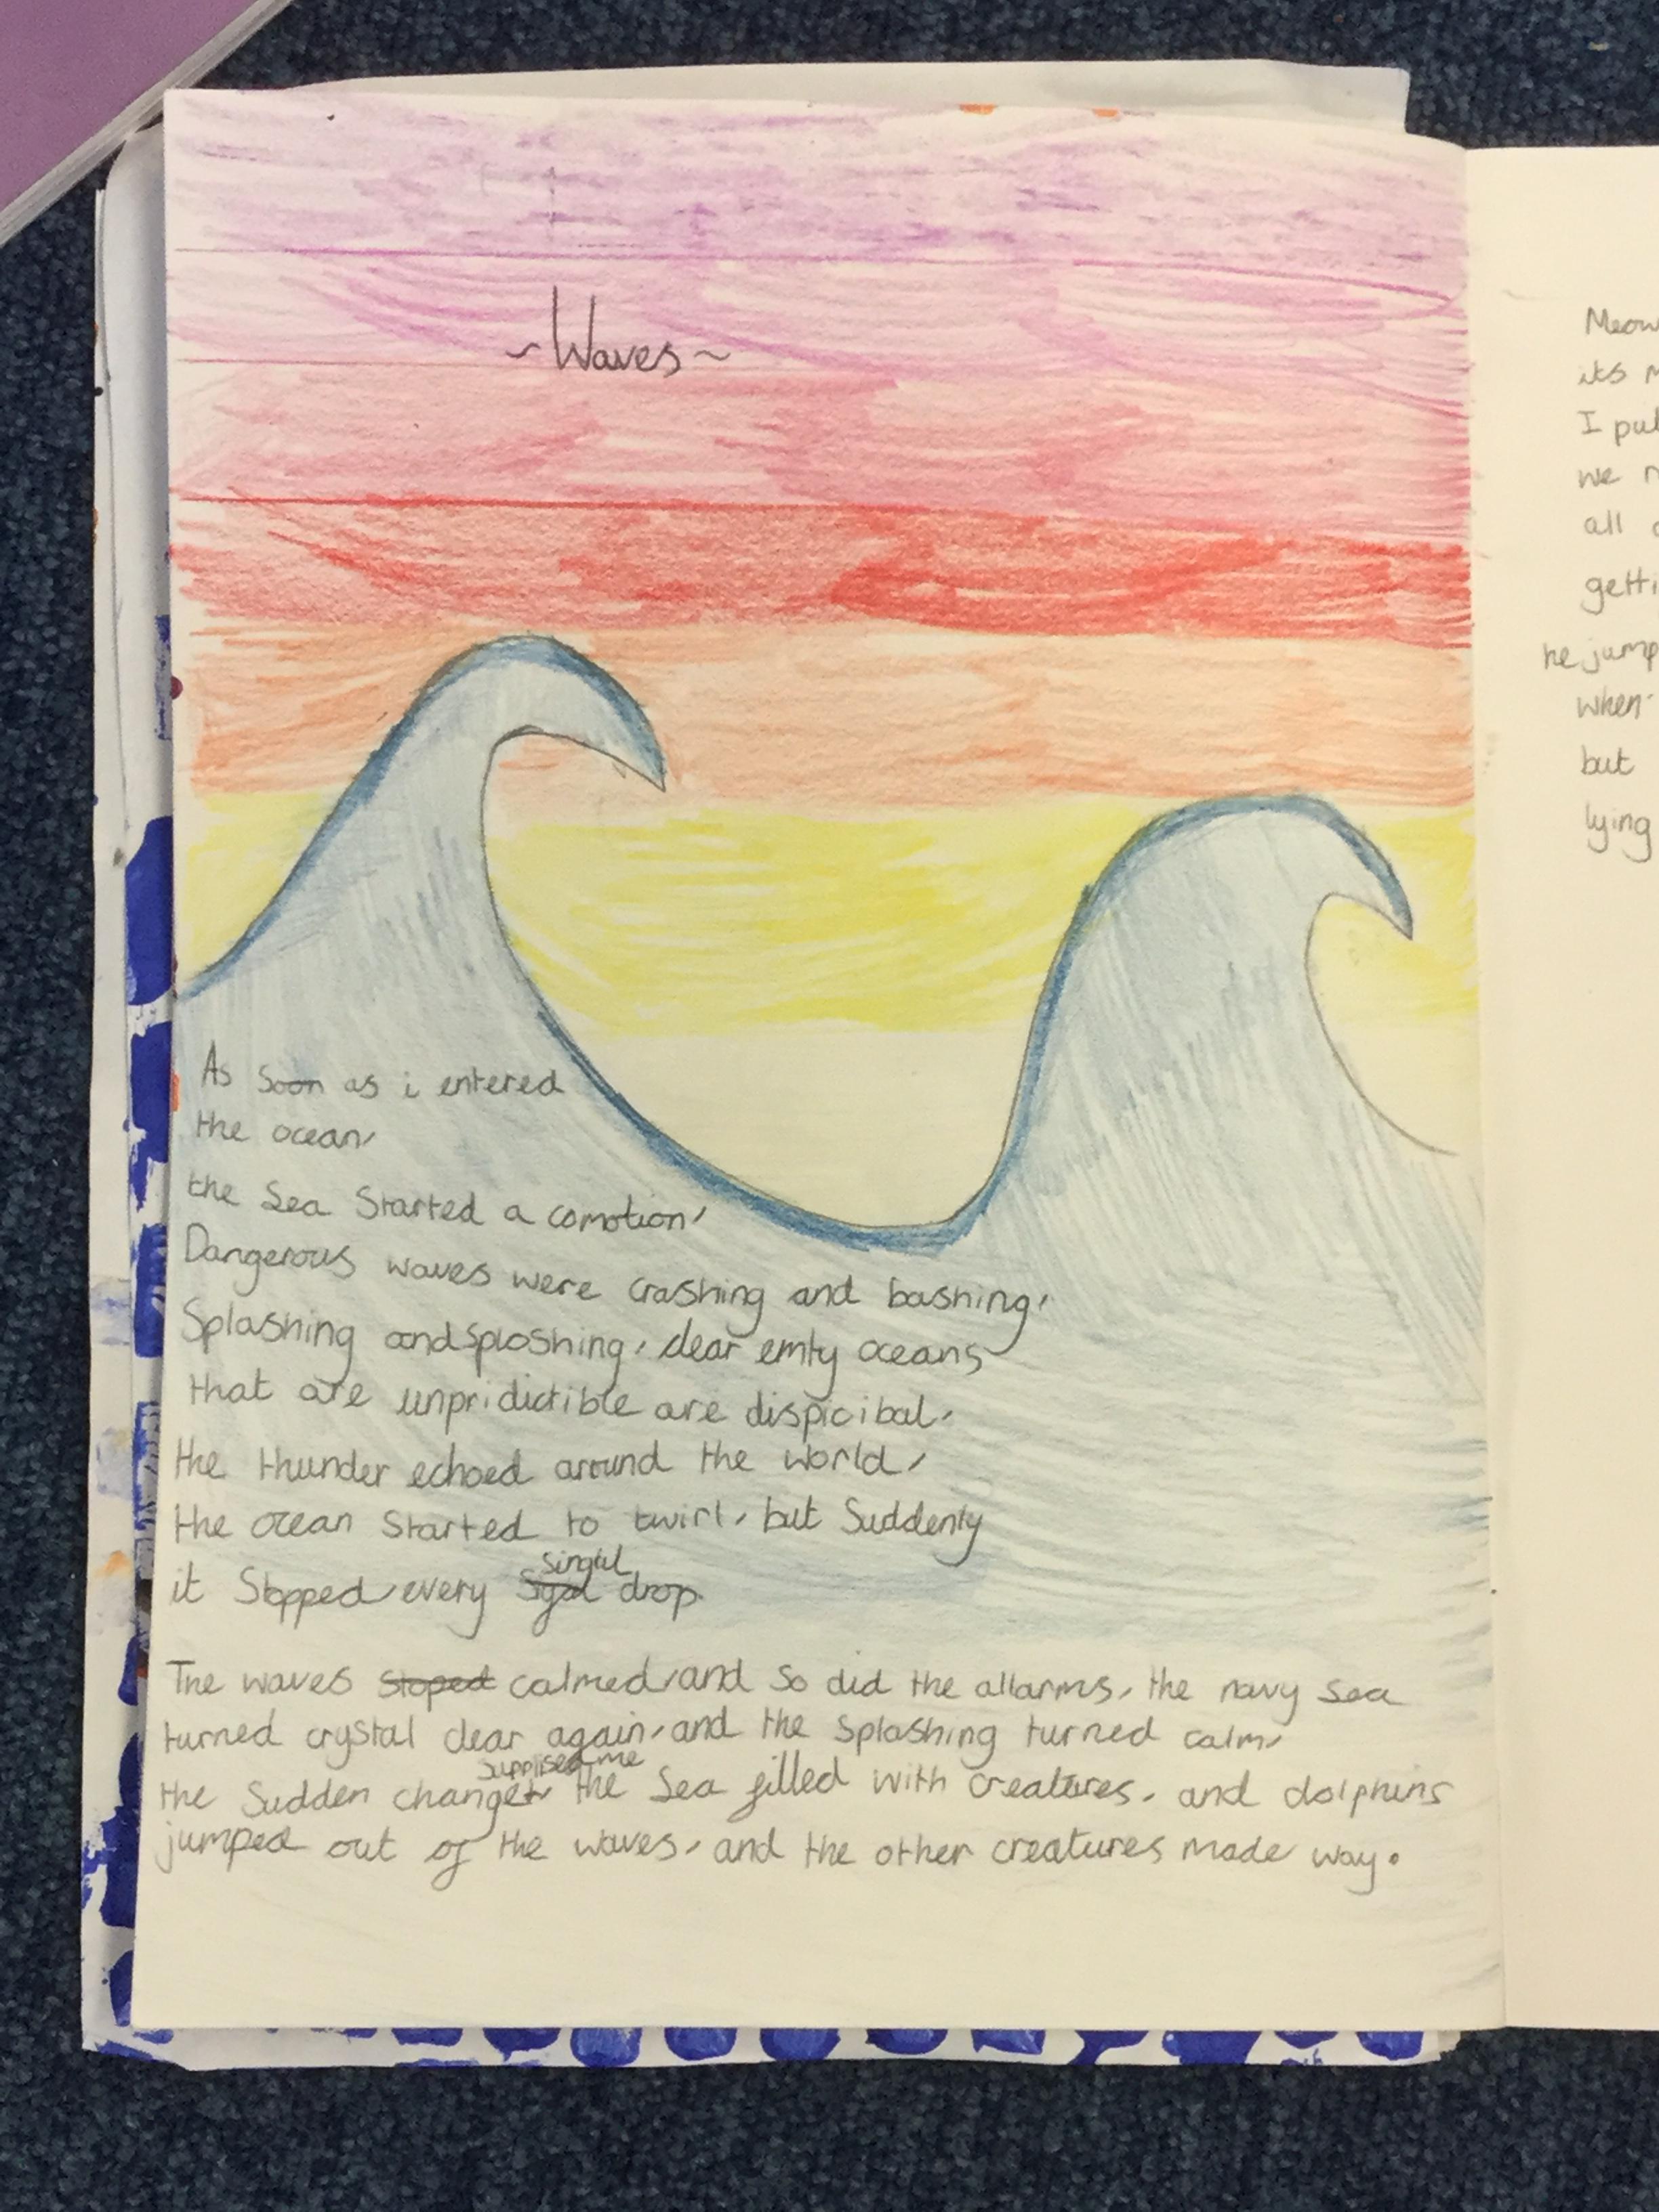 ~Waves~
As soon as i entered
the ocean,
the Sea Started a comotion,
Dangerous waves were crashing and bashing,
Splashing and sploshing, clear emty oceans
that are unpridictible are dispicibal.
the thunder echoed around the world,
the ocean Started to twirl, but Suddenly
singul
it Stopped every drop.
The waves Stoped calmed, and So did the allarms, the navy Sea
turned crystal clear again, and the splashing turned calm,
me
the Sudden change, the Sea filled with creatures, and dolphins
jumped out of the waves, and the other creatures made way.
Meow
its
I pul
we
all
getti
he jump
when
but
lying